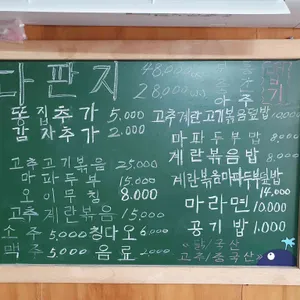 다판지 48,000
28,000
똥집추가 5.000
감자추가 2.000
고추고기볶음 25,000
마파두부 15.000
오이무침 8.000
고추계란볶음 15,000
소주 5,000 칭다오 6,000
맥주 5.000 음료 2,000
고추계란고기볶음덮밥 10.000
마파두부밥 8,000
계란볶음밥 8,000
계란볶음마파두부덮밥
14.000
마라면 10.000
공기밥 1.000
고추(중국산)